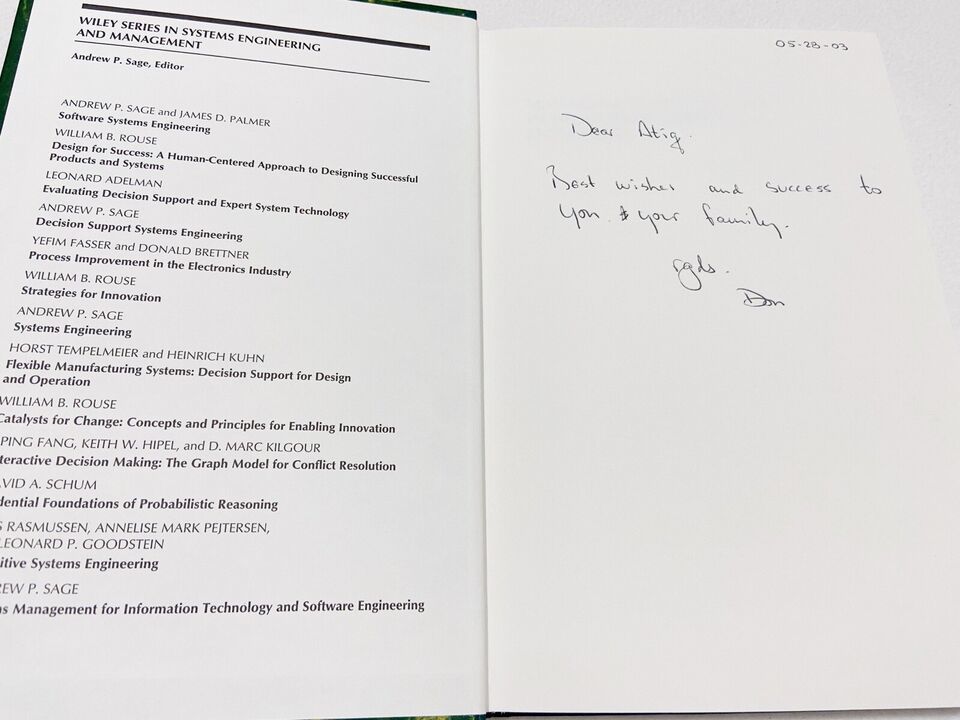 WILEY SERIES IN SYSTEMS ENGINEERING
AND MANAGEMENT
Andrew P. Sage, Editor
ANDREW P. SAGE and JAMES D. PALMER
Software Systems Engineering
WILLIAM B. ROUSE
Design for Success: A Human-Centered Approach to Designing Successful
Products and Systems
LEONARD ADELMAN
Evaluating Decision Support and Expert System Technology
ANDREW P. SAGE
Decision Support Systems Engineering
YEFIM FASSER and DONALD BRETTNER
Process Improvement in the Electronics Industry
WILLIAM B. ROUSE
Strategies for Innovation
ANDREW P. SAGE
Systems Engineering
HORST TEMPELMEIER and HEINRICH KUHN
Flexible Manufacturing Systems: Decision Support for Design
and Operation
WILLIAM B. ROUSE
Catalysts for Change: Concepts and Principles for Enabling Innovation
PING FANG, KEITH W. HIPEL, and D. MARC KILGOUR
teractive Decision Making: The Graph Model for Conflict Resolution
VID A. SCHUM
dential Foundations of Probabilistic Reasoning
S RASMUSSEN, ANNELISE MARK PEJTERSEN,
LEONARD P. GOODSTEIN
itive Systems Engineering
REW P. SAGE
ms Management for Information Technology and Software Engineering
05-28-03
Dear Atiq.
Best wishes and success to
you & your family.
rgds.
Don